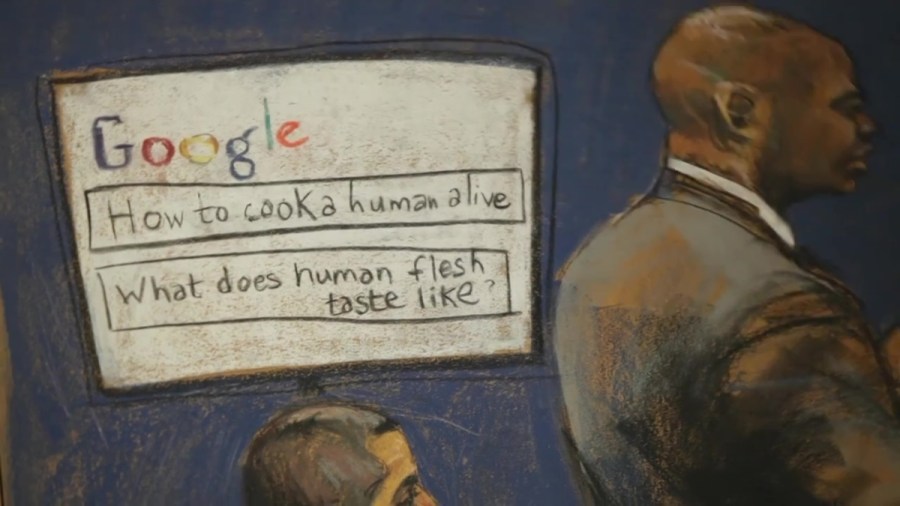 Google
How to cook a human alive
What does human flesh
taste like?